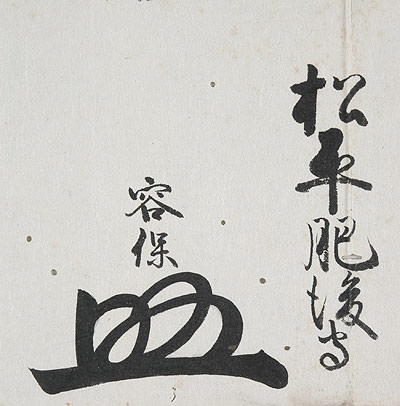 松平肥後守
容保